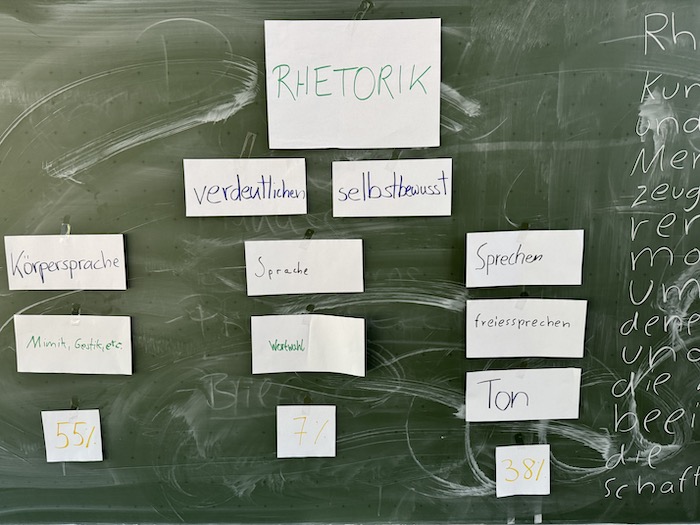 RHETORIK
verdeutlichen
selbstbewusst
Körpersprache
Mimik, Gestik, etc.
55%
Sprache
Wortwahl
7%
Sprechen
freiessprechen
Ton
38%
Rh
Kur
und
Me
zeug
rer
mo
Um
dene
und
die
beei
die
schaft